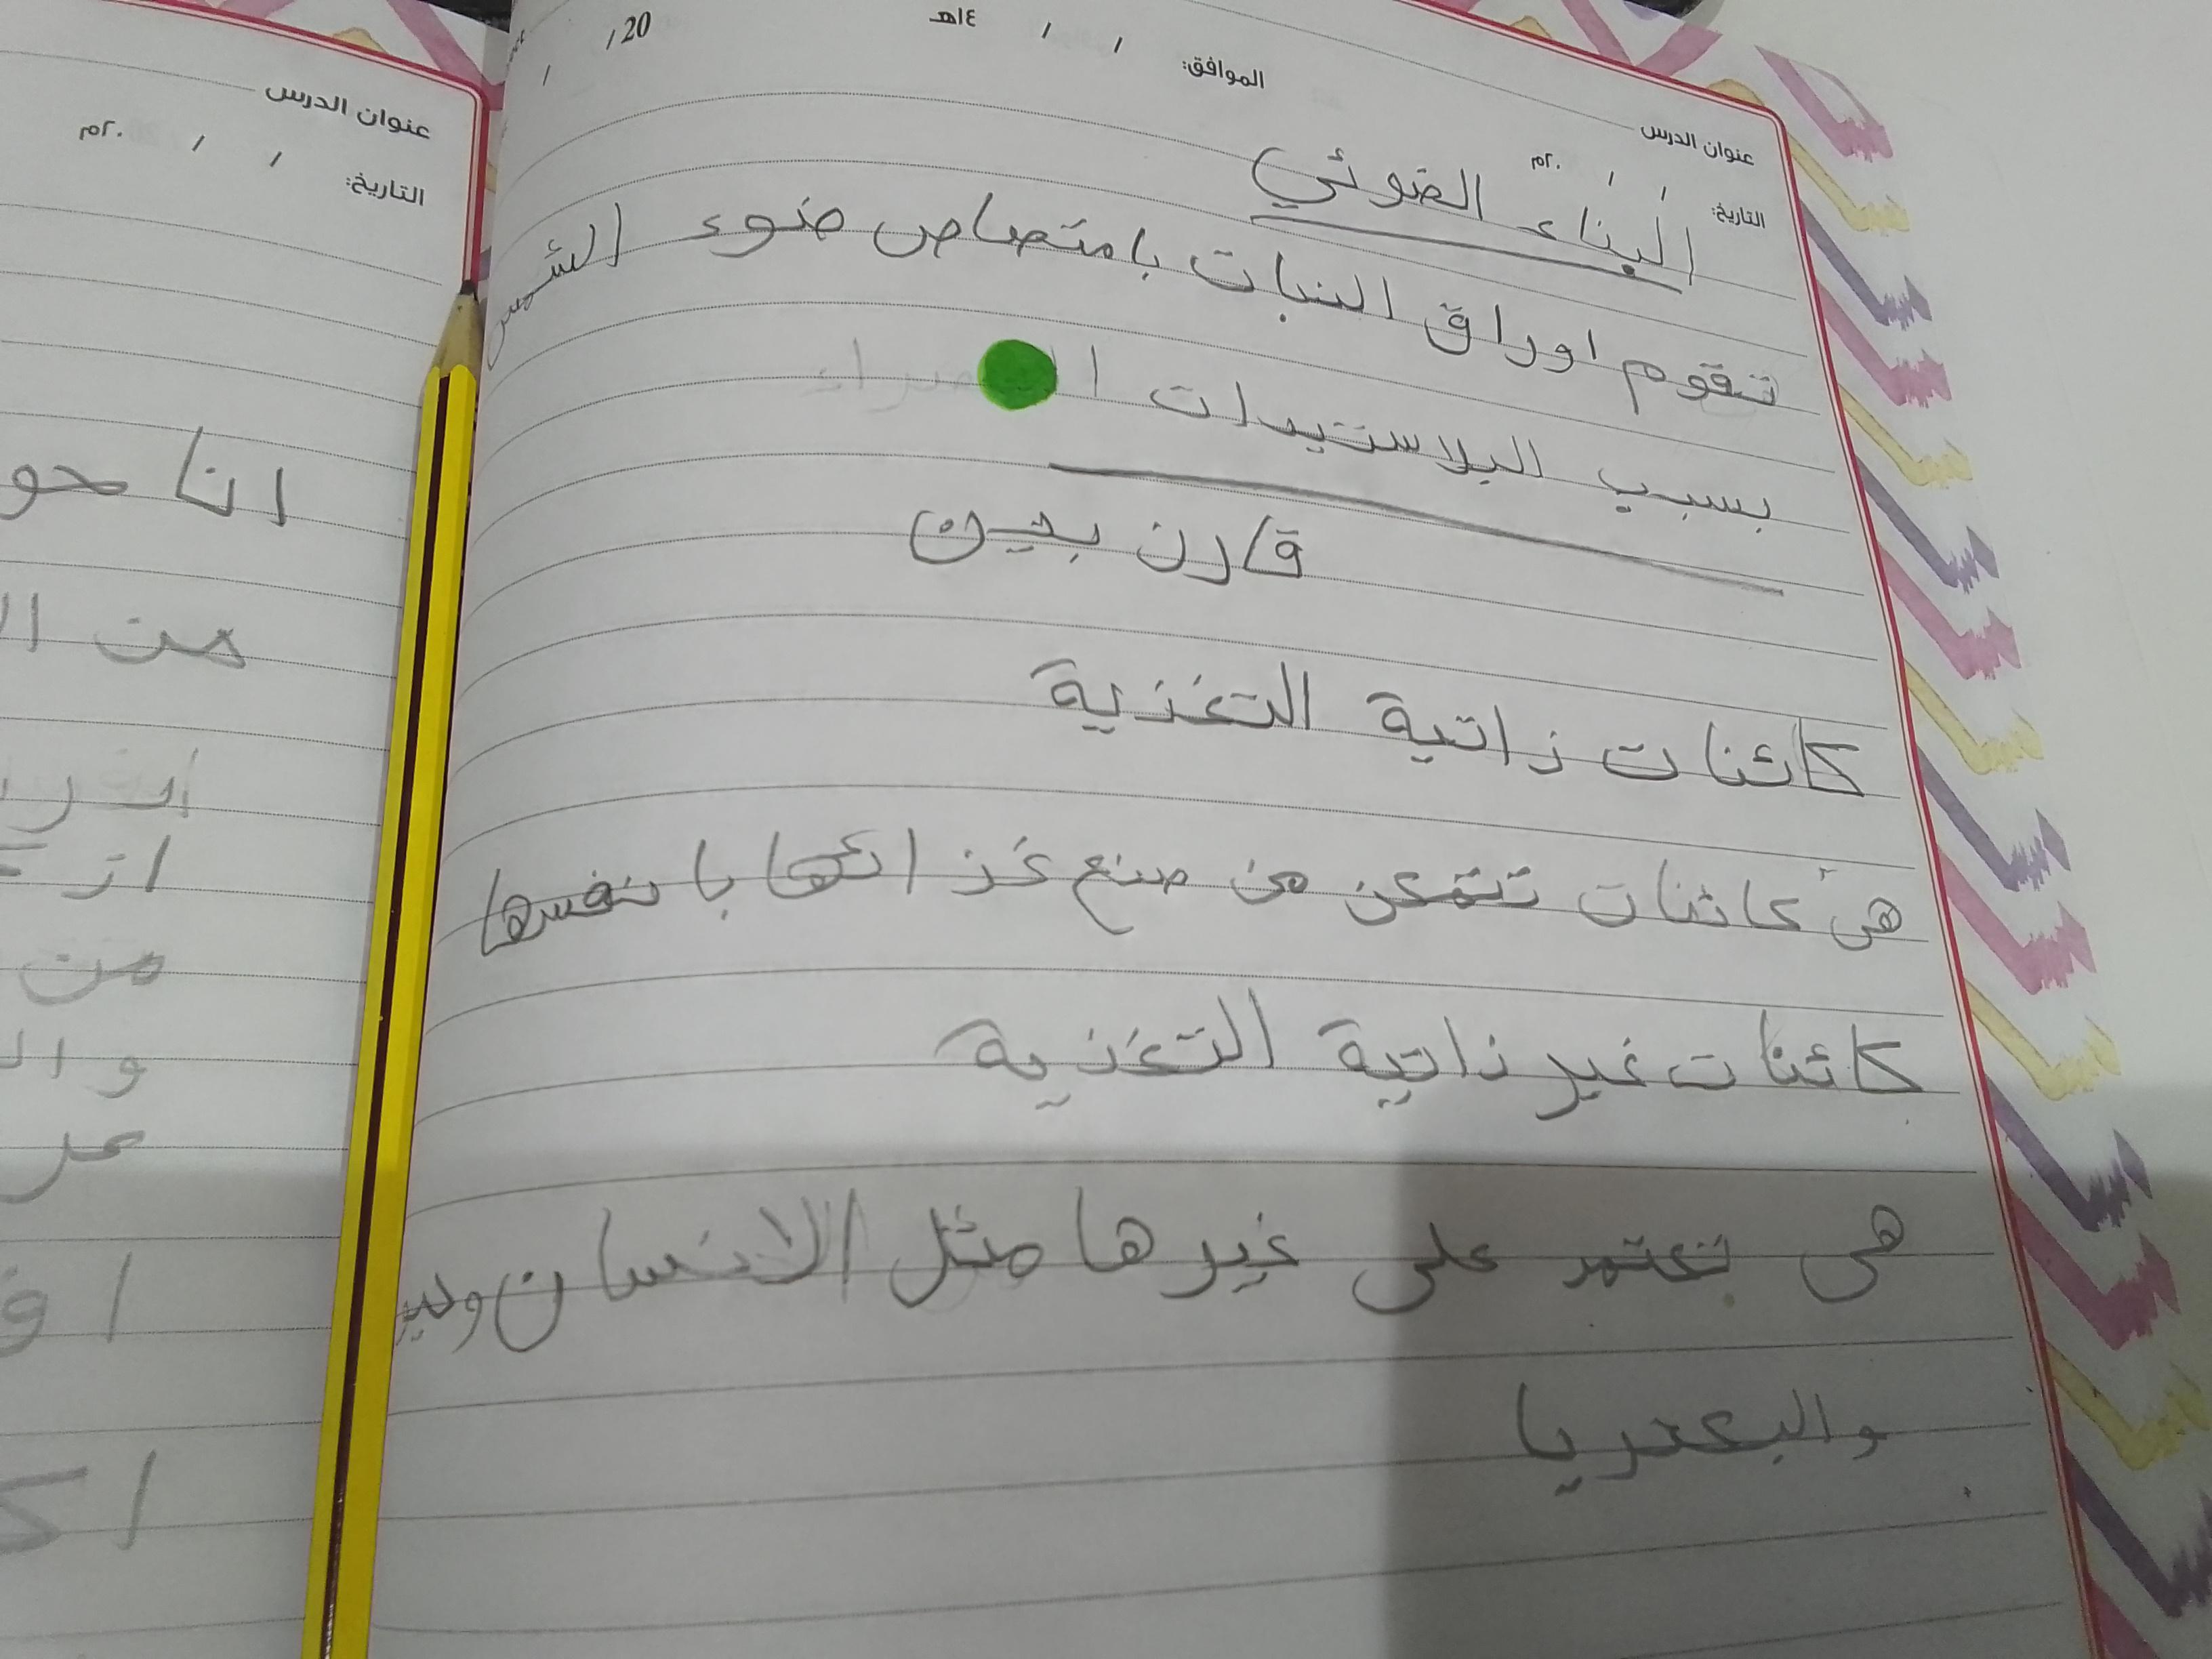 عنوان الدرس
التاريخ: / / ٢٠م الموافق: / / ١٤هـ
/ / 20
البناء الضوئي
تقوم اوراق النبات بامتصاص ضوء الشمس
بسبب البلاستيدات
قارن بين
كائنات ذاتية التغذية
هي كائنات تتمكن من صنع غذائها بانفسها
كائنات غير ذاتية التغذية
هي تعتمد على غيرها مثل الانسان
والبكتريا
عنوان الدرس
التاريخ: / / ٢٠م
انا
من
من